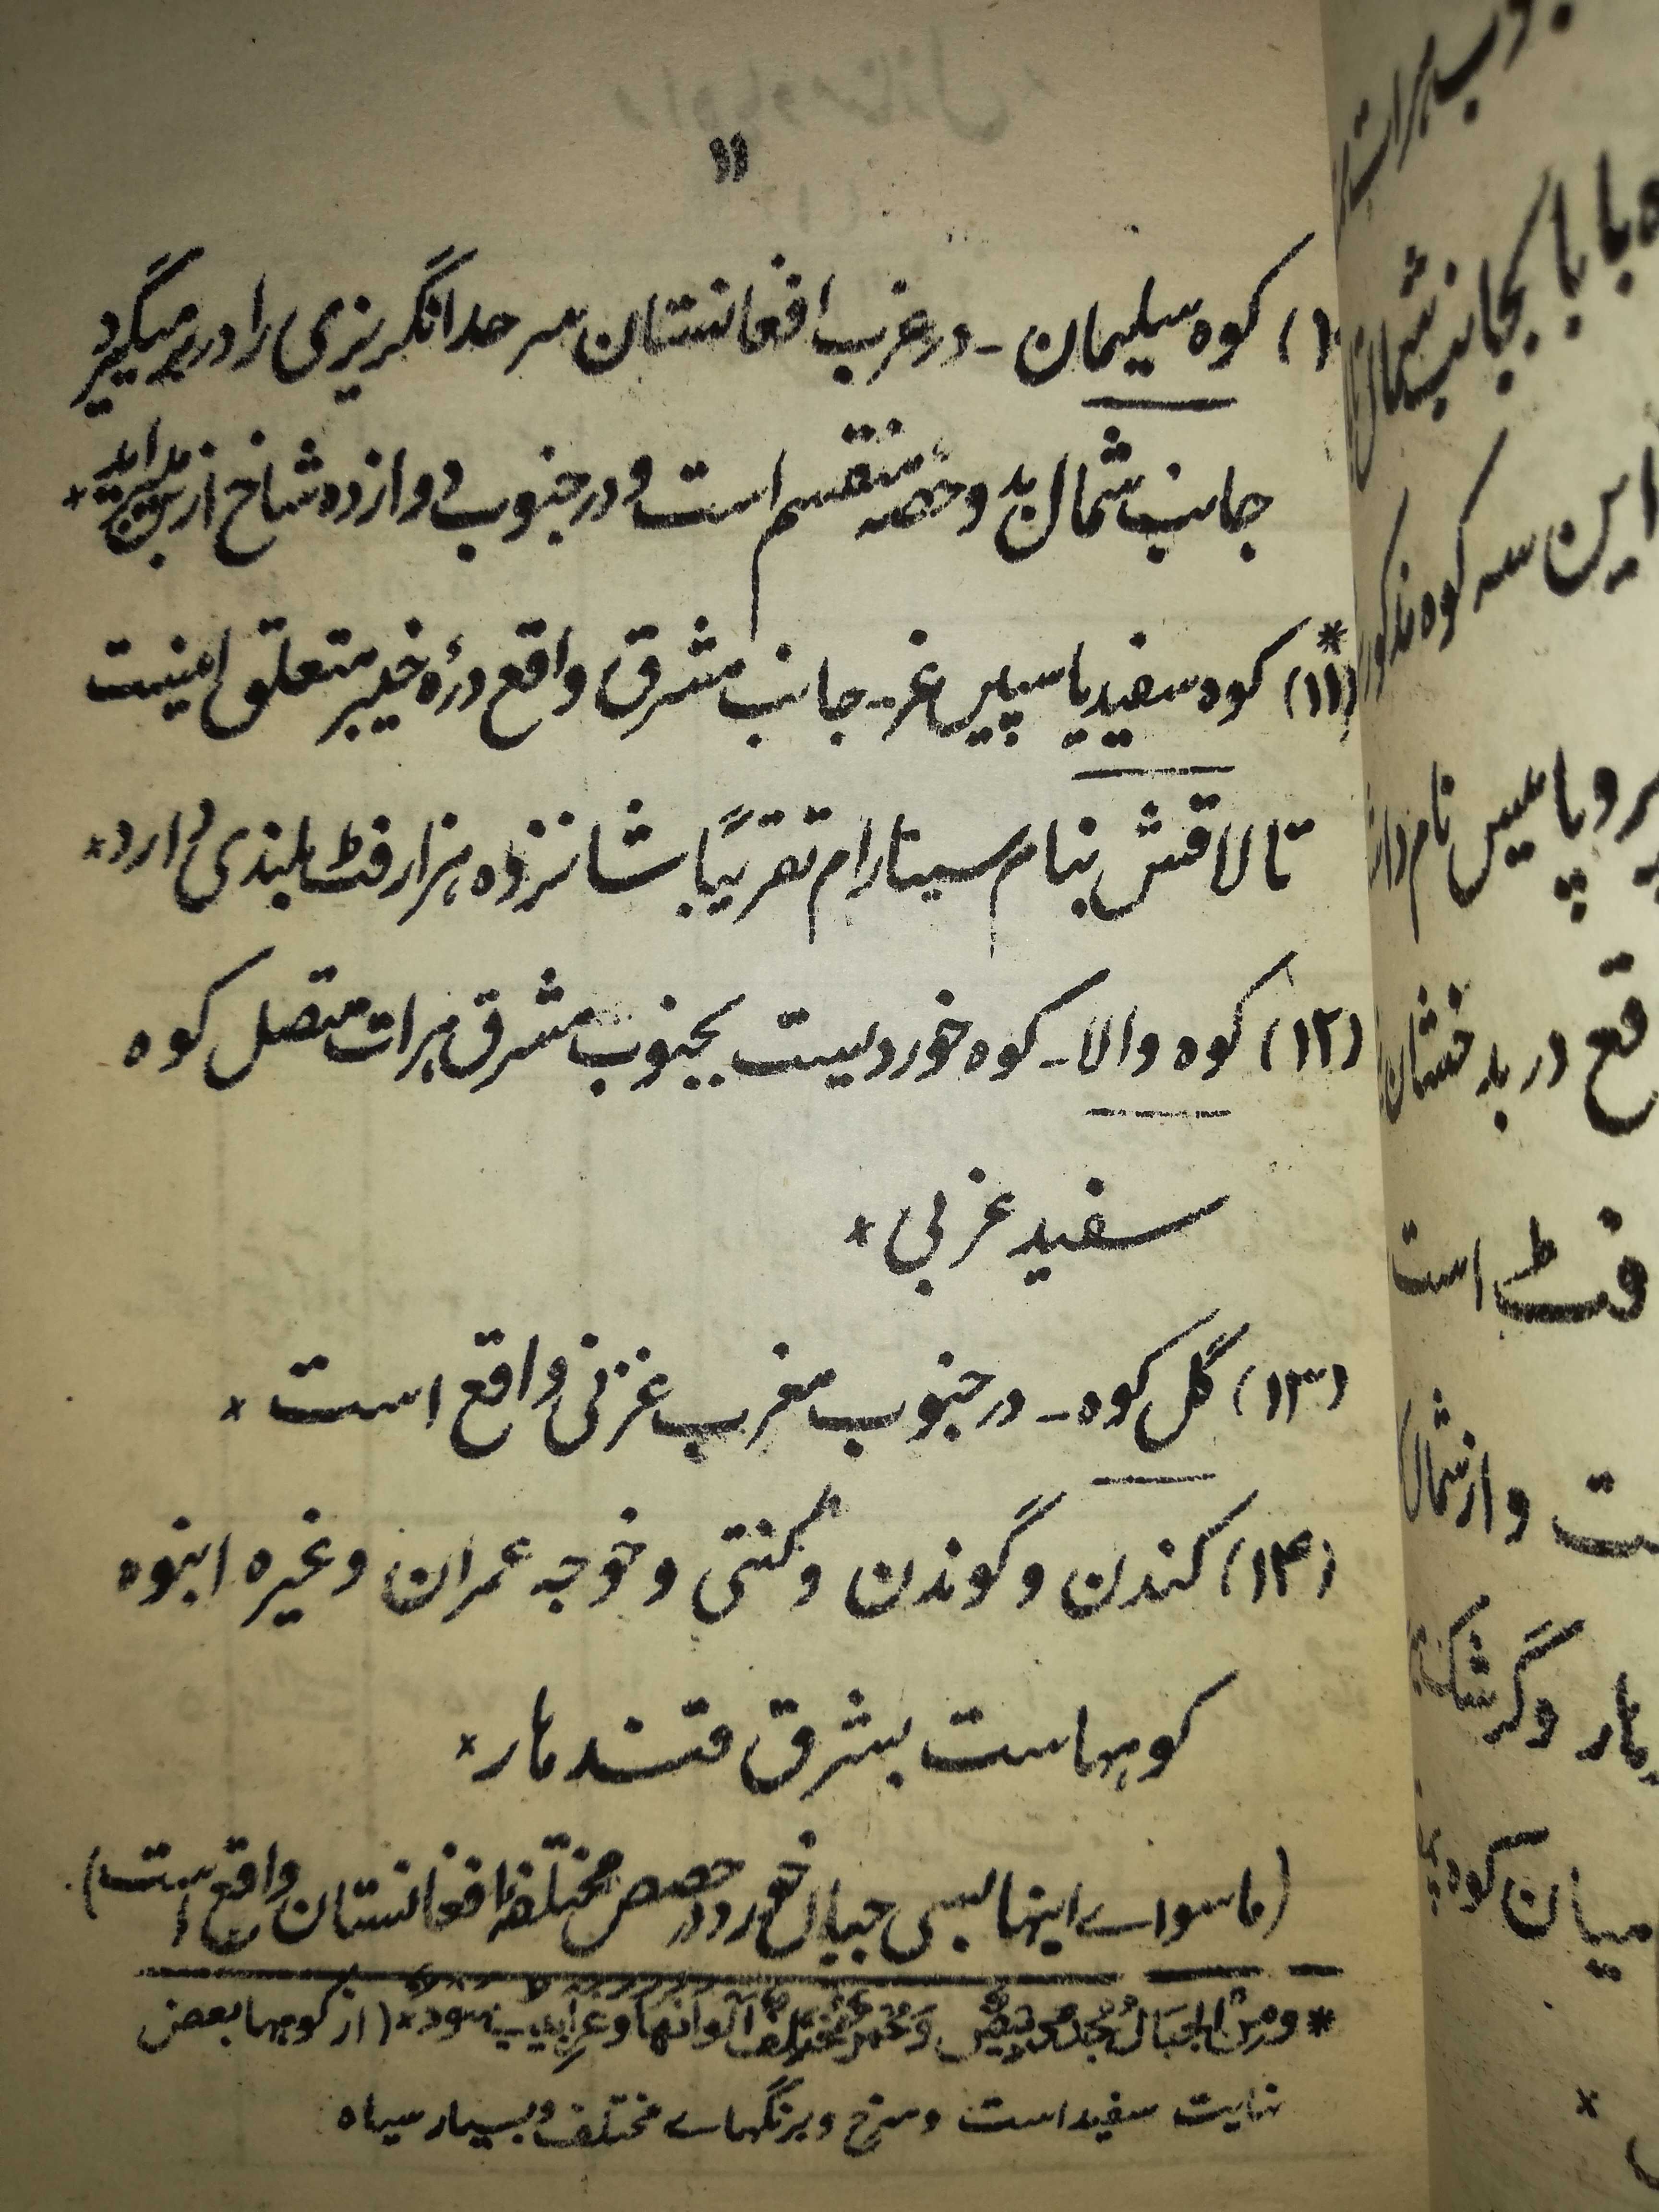 ۱۱
(۱۰) کوه سلیمان - در غرب افغانستان سرحد انگریزی را در بر میگیرد
جانب شمال بدو حصه منقسم است و در جنوب دوازده شاخ از
*(۱۱) کوه سفید یا سپین غر - جانب مشرق واقع درۀ خیبر متعلق اینست
تا لاقش بنام سیتارام تقریباً شانزده هزار فٹ بلندی دارد ×
(۱۲) کوه والا - کوه خوردیست بجنوب مشرق هرات متصل کوه
سفید غربی ×
(۱۳) گل کوه - در جنوب مغرب غزنی واقع است ×
(۱۴) کندن و گوندن و کنتی و خوجه عمران و غیره انبوه
کوهها ست بشرق قندهار ×
(ماسواے اینها بسی جبال خورد در حصص مختلفۀ افغانستان واقع است)
* وَمِنَ الْجِبَالِ جُدَدٌ بِیضٌ وَحُمْرٌ مُخْتَلِفٌ أَلْوَانُهَا وَغَرَابِیبُ سُود × (از کوهها بعض
نهایت سفید است و سرخ و برنگهاے مختلف و بسیار سیاه
وب هرات
ه بابا بجانب شمال
این سه کوه مذکور
نام دار
قع در بدخشان
فٹ است
ت و از شمال
مار و گرشک
میان کوه
×